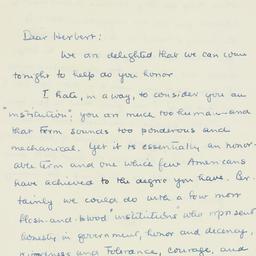 Dear Herbert:
We are delighted that we can come
tonight to help do you honor
I hate, in a way, to consider you an
"institution"; you are much too human and
that term sounds too ponderous and
mechanical. Yet it is essentially an honor-
able term and one which few Americans
have achieved to the degree you have. Cer-
tainly we could do with a few more
flesh-and-blood "institutions" who represent
honesty in government, honor and decency,
and tolerance, courage, and